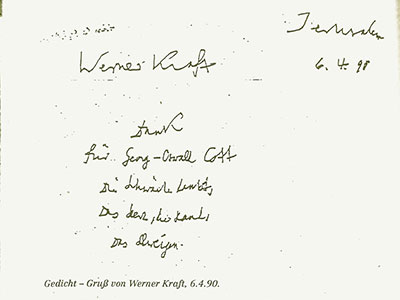 Jerusalem
6. 4. 90
Werner Kraft
Dank
für Georg-Oswald Cott
Die
Das
Das Schweigen.
Gedicht – Gruß von Werner Kraft, 6.4.90.